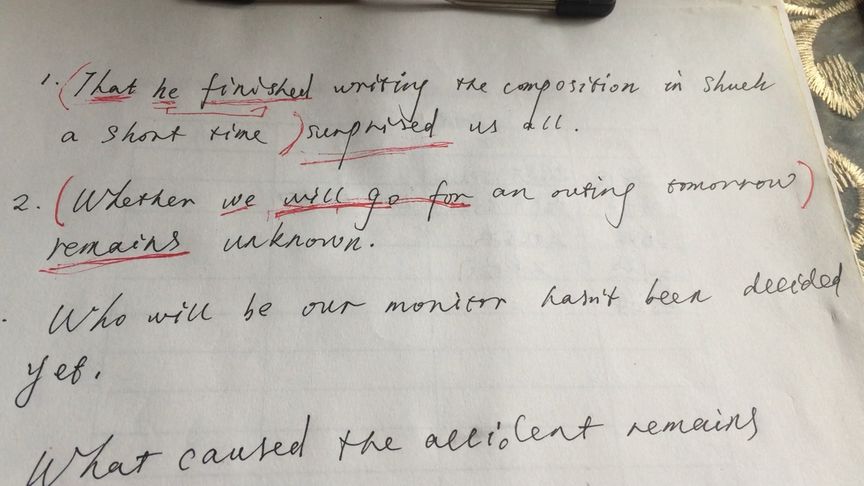 1. (That he finished writing the composition in shuch
a short time) surprised us all.
2. (Whether we will go for an outing tomorrow)
remains unknown.
. Who will be our monitor hasn't been decided
yet.
What caused the accident remains